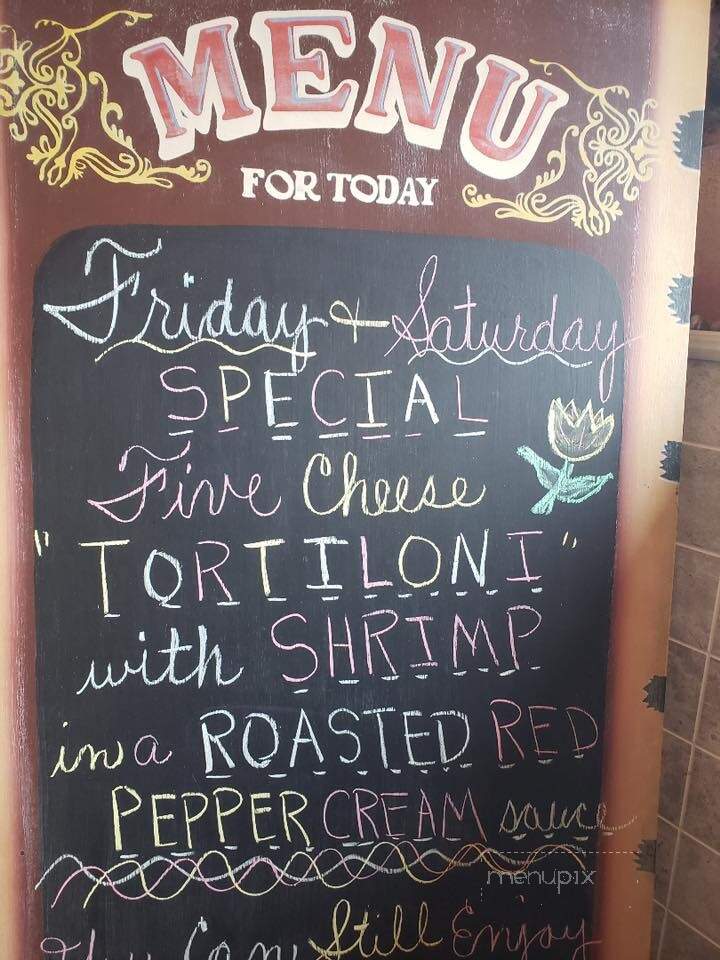 MENU
FOR TODAY
Friday & Saturday
SPECIAL
Five Cheese
"TORTILONI"
with SHRIMP
in a ROASTED RED
PEPPER CREAM sauce
menupix
You Can Still Enjoy